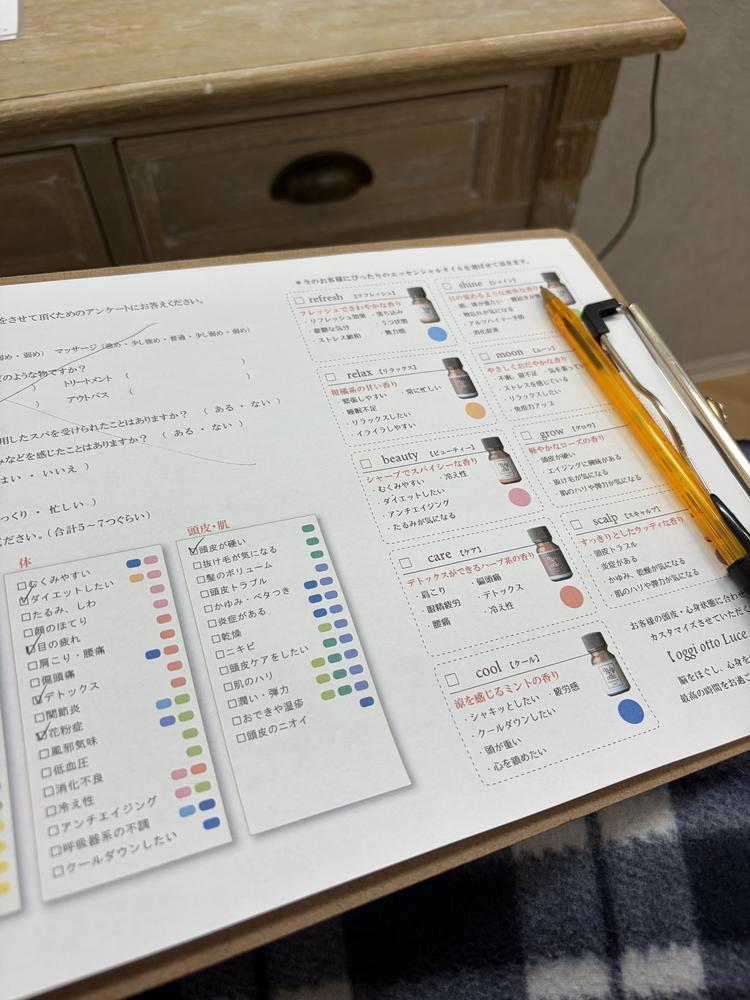 をさせて頂くためのアンケートにお答えください。
弱め・弱め） マッサージ（強め・少し強め・普通・少し弱め・弱め）
どのような物ですか？
トリートメント （ ）
アウトバス （ ）
用したスパを受けられたことはありますか？ （ ある・ない ）
みなどを感じたことはありますか？ （ ある・ない ）
はい ・ いいえ ）
つくり ・ 忙しい ）
ださい。（合計5～7つぐらい）
体
□むくみやすい
□ダイエットしたい
□たるみ、しわ
□顔のほてり
□目の疲れ
□肩こり・腰痛
□偏頭痛
□デトックス
□関節炎
□花粉症
□風邪気味
□低血圧
□消化不良
□冷え性
□アンチエイジング
□呼吸器系の不調
□クールダウンしたい
頭皮・肌
□頭皮が硬い
□抜け毛が気になる
□髪のボリューム
□頭皮トラブル
□かゆみ・ベタつき
□炎症がある
□乾燥
□ニキビ
□頭皮ケアをしたい
□肌のハリ
□潤い・弾力
□おできや湿疹
□頭皮のニオイ
＊今のお客様にぴったりのエッセンシャルオイルを選ばせて頂きます。
□ refresh 【リフレッシュ】
フレッシュでさわやかな香り
・リフレッシュ効果 ・落ち込み
・憂鬱な気分 ・うつ状態
・ストレス緩和 ・無力感
□ relax 【リラックス】
柑橘系の甘い香り
・緊張しやすい ・常に忙しい
・睡眠不足
・リラックスしたい
・イライラしやすい
□ beauty 【ビューティー】
シャープでスパイシーな香り
・むくみやすい ・冷え性
・ダイエットしたい
・アンチエイジング
・たるみが気になる
□ care 【ケア】
デトックスができるハーブ系の香り
・肩こり ・偏頭痛
・眼精疲労 ・デトックス
・腰痛 ・冷え性
□ cool 【クール】
涼を感じるミントの香り
・シャキッとしたい ・疲労感
・クールダウンしたい
・頭が重い
・心を鎮めたい
□ shine 【シャイン】
目の覚めるような爽快な香り
・朝、体が重たい
・物忘れが気になる
・アルツハイマー予防
・消化促進
□ moon 【ムーン】
やさしくおだやかな香り
・不眠、寝不足
・ストレスを感じている
・リラックスしたい
・免疫力アップ
□ grow 【グロウ】
軽やかなローズの香り
・頭皮が硬い
・エイジングに興味がある
・抜け毛が気になる
・肌のハリや弾力が気になる
□ scalp 【スキャルプ】
すっきりとしたウッディな香り
・頭皮トラブル
・炎症がある
・かゆみ、乾燥が気になる
・肌のハリや弾力が気になる
お客様の頭皮・心身状態に合わせ
カスタマイズさせていただ
【oggi otto Luce
脳をほぐし、心身を
最高の時間をお過ご